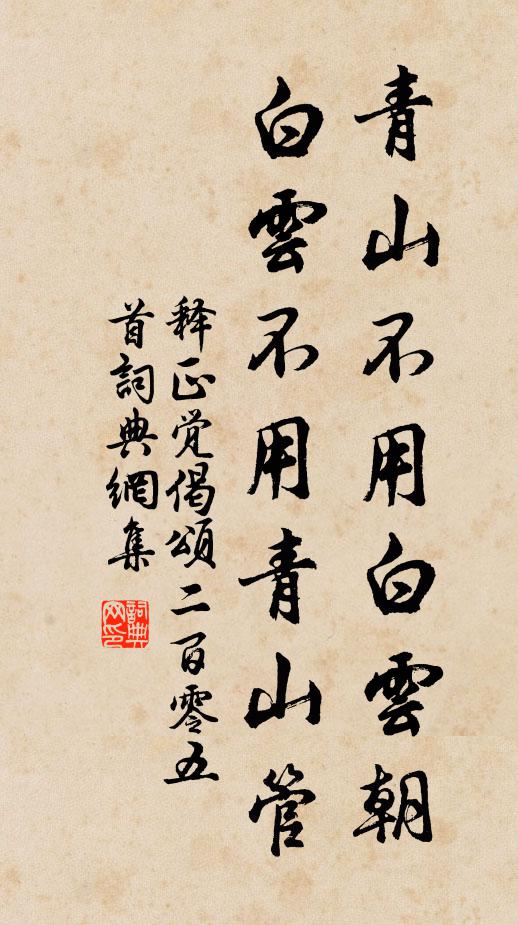 青山不用白雲朝
白雲不用青山管
释正觉偈頌二百零五
首詞典網集
詞典网印